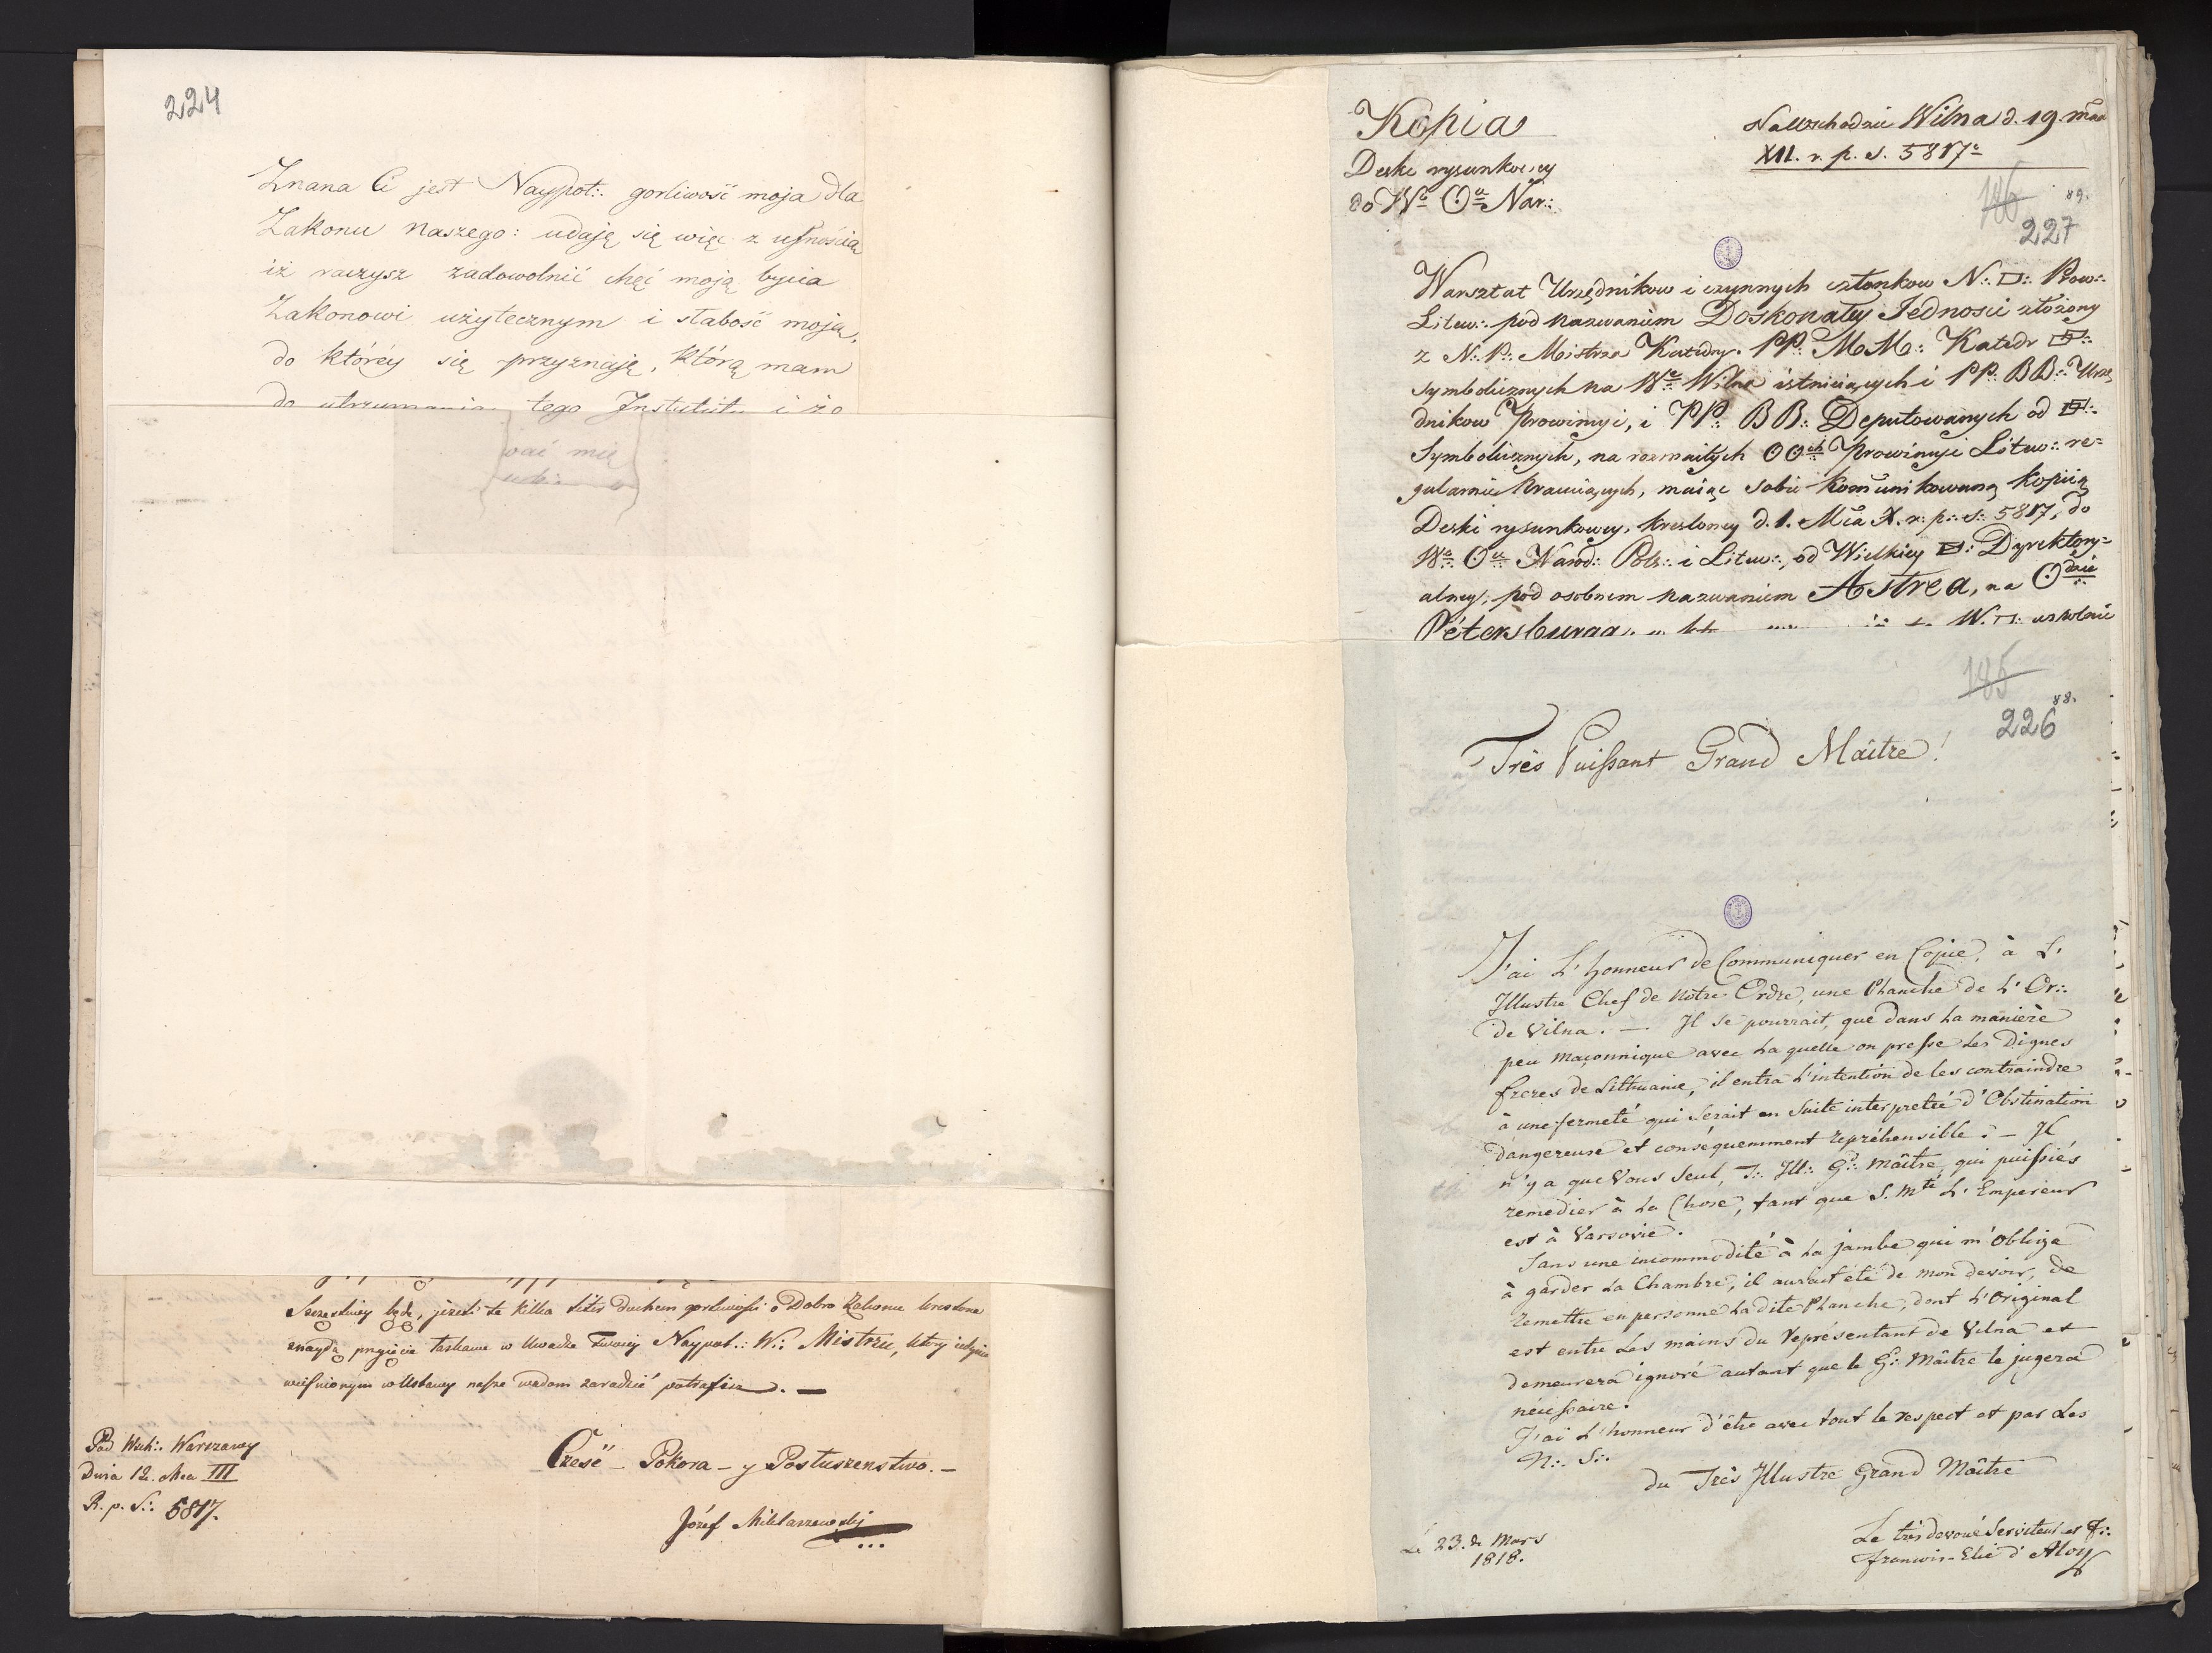 224
Znana Ci jest Naypot:. gorliwość moja dla
Zakonu naszego: udaję się więc z ufnością
iż raczysz zadowolnić chęć moją bycia
Zakonowi użytecznym i słabość moją,
do któréy się przyznaję, którą mam
do utrzymania tego Instytutu i że
wać mię
Szczęśliwy będę, jeżeli te kilka liter duchem gorliwości o Dobro Zakonu kreslone
znaydą przyięcie łaskawe w Uwadze Twoiey Naypot.: W.: Mistrzu, który iedynie
wcisnionym w Ustawy nasze wadom zaradzić potrafisz. —
Pod Wsch:. Warszawy
Dnia 12. Mca III
R. p. S.: 5817.
Cześć – Pokora – y Posłuszenstwo. –
Józef Miklaszewski
Kopia
Deski rysunkowey
do Wo Ou Nar:.
Na Wschodzie Wilna d. 19. mca
XII. r. p. s. 5817o
186 89.
227
Warsztat Urzędnikow i czynnych członkow N:. □:. Prow:.
Litew:. pod nazwaniem Doskonałey Jedności złożony
z N:. P:. Mistrza Katedry. PP:. MM:. Katedr □:.
symbolicznych na Wie Wilna istnieiących i PP:. BB:. Urzę
dnikow Prowincyi, i PP:. BB:. Deputowanych od □:.
Symbolicznych, na rozmaitych OOch Prowincyi Litew:. re=
gularnie Pracuiących, maiąc sobie kom̃unikowaną kopią
Deski rysunkowey, kresloney d. 1. Mca X. r. p:. s:. 5817, do
Wo Ou Narod:. Pols:. i Litew:., od Wielkiey □:. Dyrektory=
alney, pod osobnem nazwaniem Astrea, na Odzie
Pétersburga W. □:.
185 88.
226
Très Puissant Grand Maître!
J'ai L'honneur de Communiquer en Copie, à L'
Illustre Chef de nôtre Ordre, une Planche de L'Or:.
de Vilna. — Il se pourrait, que dans la manière
peu maçonnique avec laquelle on presse les Dignes
freres de Lithuanie, il entra l'intention de les contraindre
à une fermeté qui serait en Suite interpretée d'Obstination
dangereuse et conséquemment repréhensible. – Il
n'y a que Vous Seul, T:. Ill:. Gd:. Maître, qui puissiés
remedier à La Chose, tant que S. Mté L'Empereur
est à Varsovie.
Sans une incommodité à La jambe qui m'oblige
à garder La Chambre, il aurait été de mon devoir, de
remettre en personne La dite Planche, dont L'Original
est entre Les mains du Représentant de Vilna et
demeurera ignoré autant que le G:. Maître le jugera
nécessaire.
J'ai L'honneur d'être avec tout le respect et par Les
N:. S:.
du Très Illustre Grand Maître
Le 23. de Mars
1818.
Le très devoué Serviteur et F:.
François-Elie d'Aloy